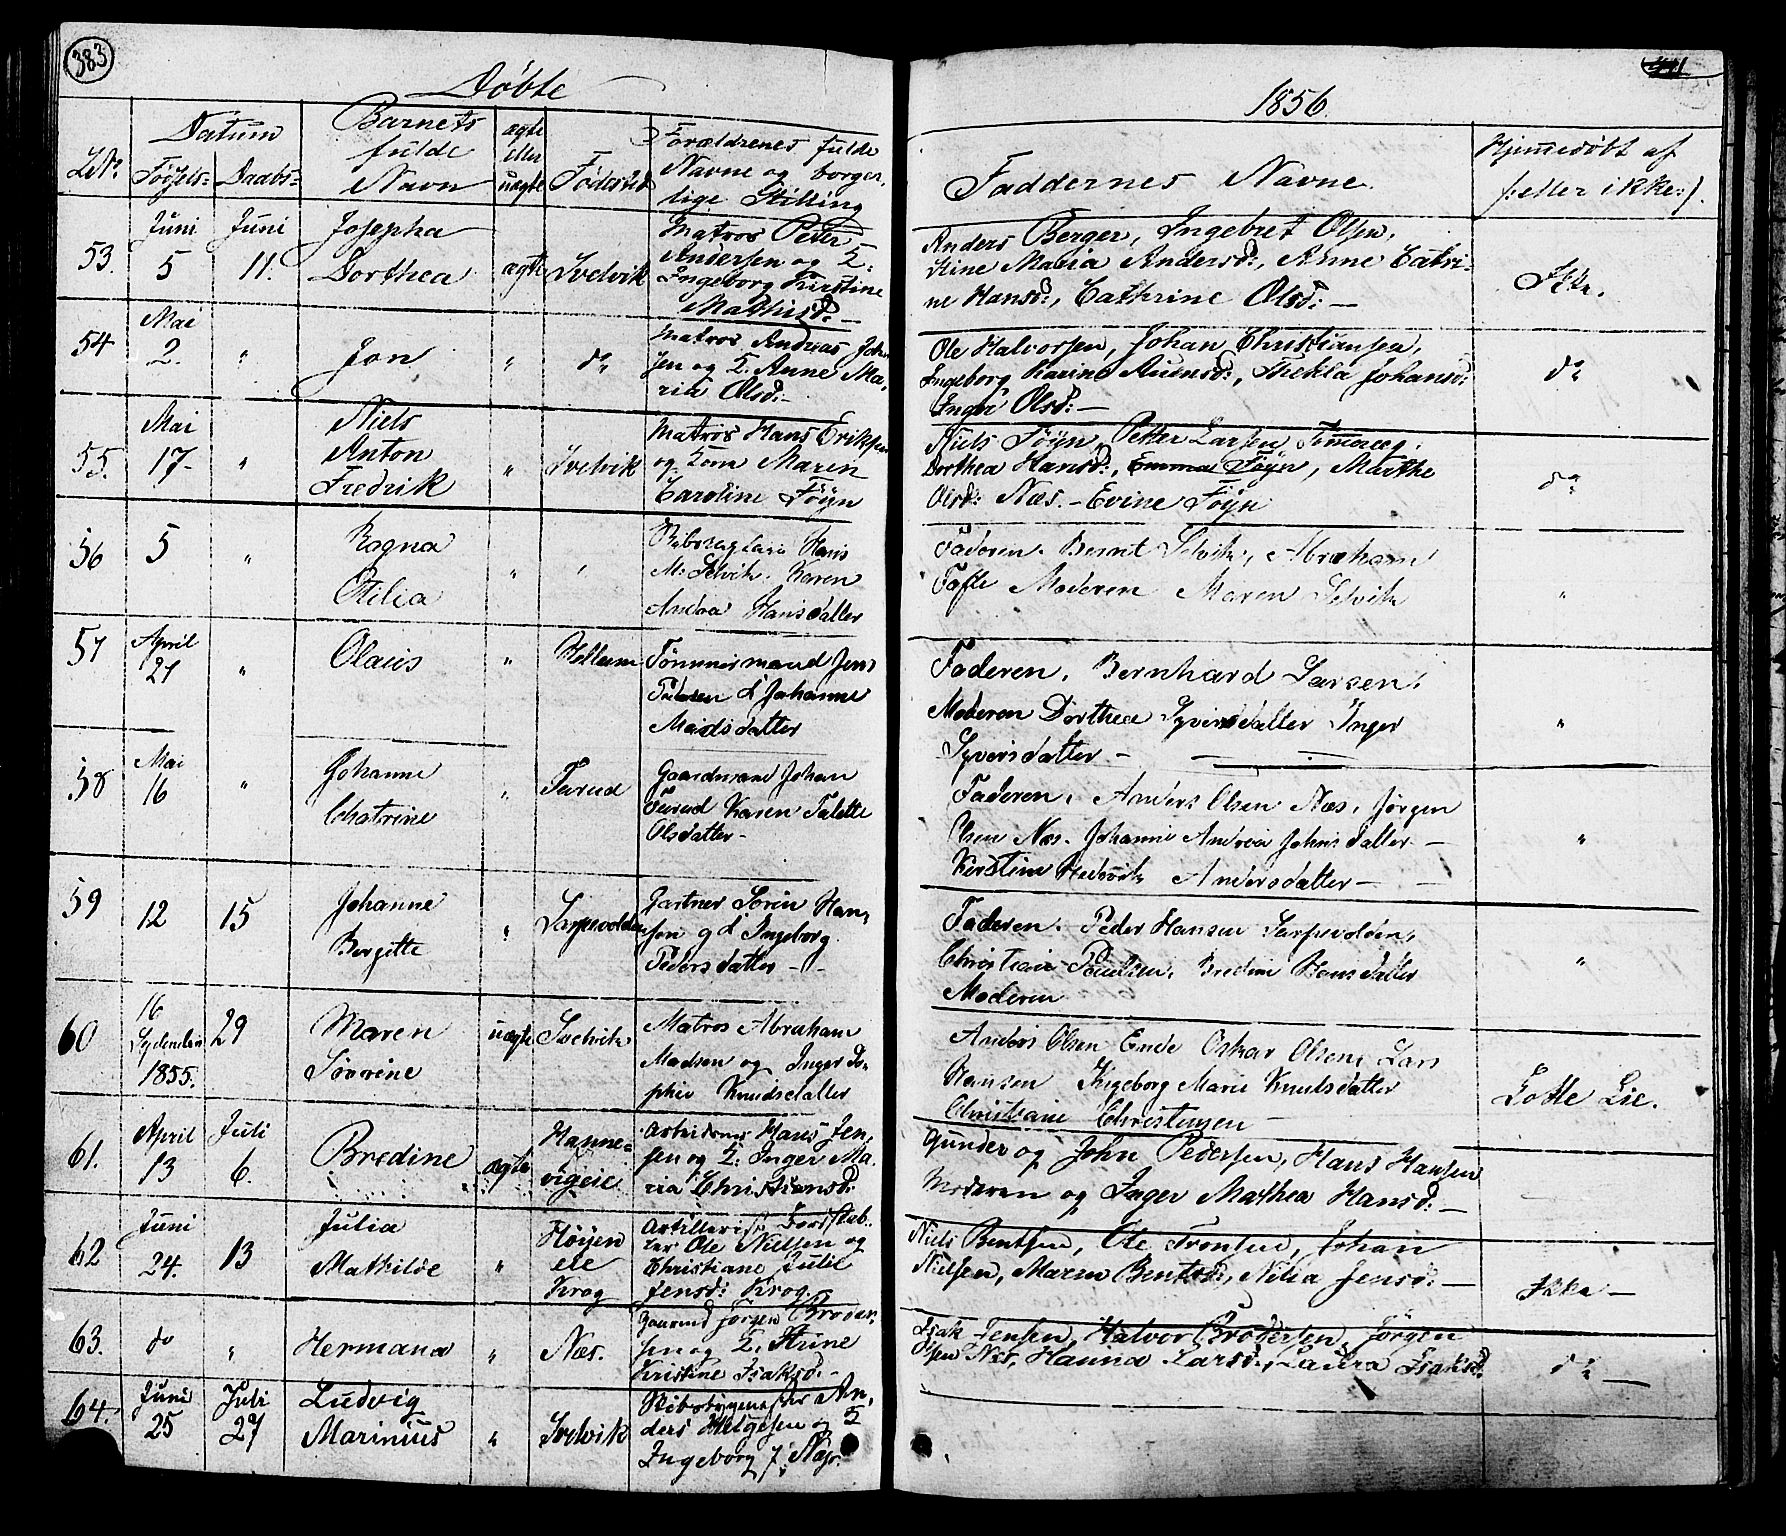 383
Döbte
1856.
Datum
Barnets
fulde
Navn
ægte
eller
uægte
Födested
Forældrenes fulde
Navne og borger-
lige Stilling
LNo.
Födsels-
Daabs-
Faddernes Navne.
Hjemmedöbt af
/:eller ikke:/.
53.
Juni
5
Juni
11.
Josepha
Dorthea
ægte
Svelvik
Matros Peter
Andersen og
Ingeborg Kirstine
Mathisd:
Anders Berger, Ingebret Olsen,
Stine Maria Andersd:, Anne Catri-
ne Hansd:, Cathrine Olsd: —
Ikke.
54
Mai
2.
"
Jon
"
do
Matros Andreas John
sen og Anne Ma-
ria Olsd: -
Ole Halvorsen, Johan Christiansen,
Ingeborg Karine Auensd:, Thekla Johansd:
Inger Olsd: —
do
55.
Mai
17-
"
Niels
Anton
Fredrik
"
Svelvik
Matros Hans Eriksen
og Kone Maren
Caroline Föyn
Niels Föyn, Petter Larsen
Dorthea Hansd:, Emma Föyn, Marthe
Olsd: Næs. - Evine Föyn
do
56
5
"
Ragna
Otilia
"
Hans
M. Selvik. Karen
Andrea Hansdatter
Faderen. Bernt Selvik, Abraham
Tofte Moderen Maren Selvik
"
57
April
21
"
Olaus
"
Tömmermand Jens
Johanne
Madsdatter
Faderen. Bernhard Larsen.
Moderen Dorthea Syversdatter Inger
Syversdatter -
"
58
Mai
16
"
Johanne
Chatrine
"
Tarud
Gaardmand Johan
Tarud Karen Talette
Olsdatter -
Faderen. Anders Olsen Næs. Jörgen
Olsen Næs. Johanne Andrea Johnsdatter —
Kirstine Hedevik Andersdatter —
"
59
12
15
Johanne
Bergitte
"
Gartner Sören Han-
sen og Ingeborg
Pedersdatter - -
Faderen. Peder Hansen
Christian Poulsen. Bredine Hansdatter
Moderen
"
60
16
1855.
29
Maren
Sörrine
uægte
Svelvik
Matros Abraham
Madsen og Inger So-
phie Knudsdatter
Anders Olsen Ende Oskar Olsen Lars
Hansen Ingeborg Marie Knutsdatter
Christiane Christensen —
Lotte Lie.
61.
April
13
Juli
6.
Bredine
ægte
Hanne-
vigeie
Arbeidsmd Hans Jen-
sen og Inger Ma-
ria Christiansd:
Gunder og John Pedersen, Hans Hansen
Moderen og Inger Mathea Hansd: —
62
Juni
24.
13
Julia
Mathilde
"
Höijen
eie
Krog
Ole Nielsen og
Christiane Julie
Jensd: Krog.
Niels Bentsen, Ole Tronsen, Johan
Nielsen, Maren Bentsd:, Nilia Jensd: —
Ikke —
63.
do
"
Hermana
"
Næs.
Gaarmd Jörgen Broder-
sen og Stine
Kristine Isaksd. -
Isak Jensen, Halvor Brodersen, Jörgen
Næs, Hanna Larsd:, Laura Isaksd.
do —
64.
Juni
25
Juli
27
Ludvig
Marinius
"
Svelvik
An-
ders Helgesen og
Ingeborg